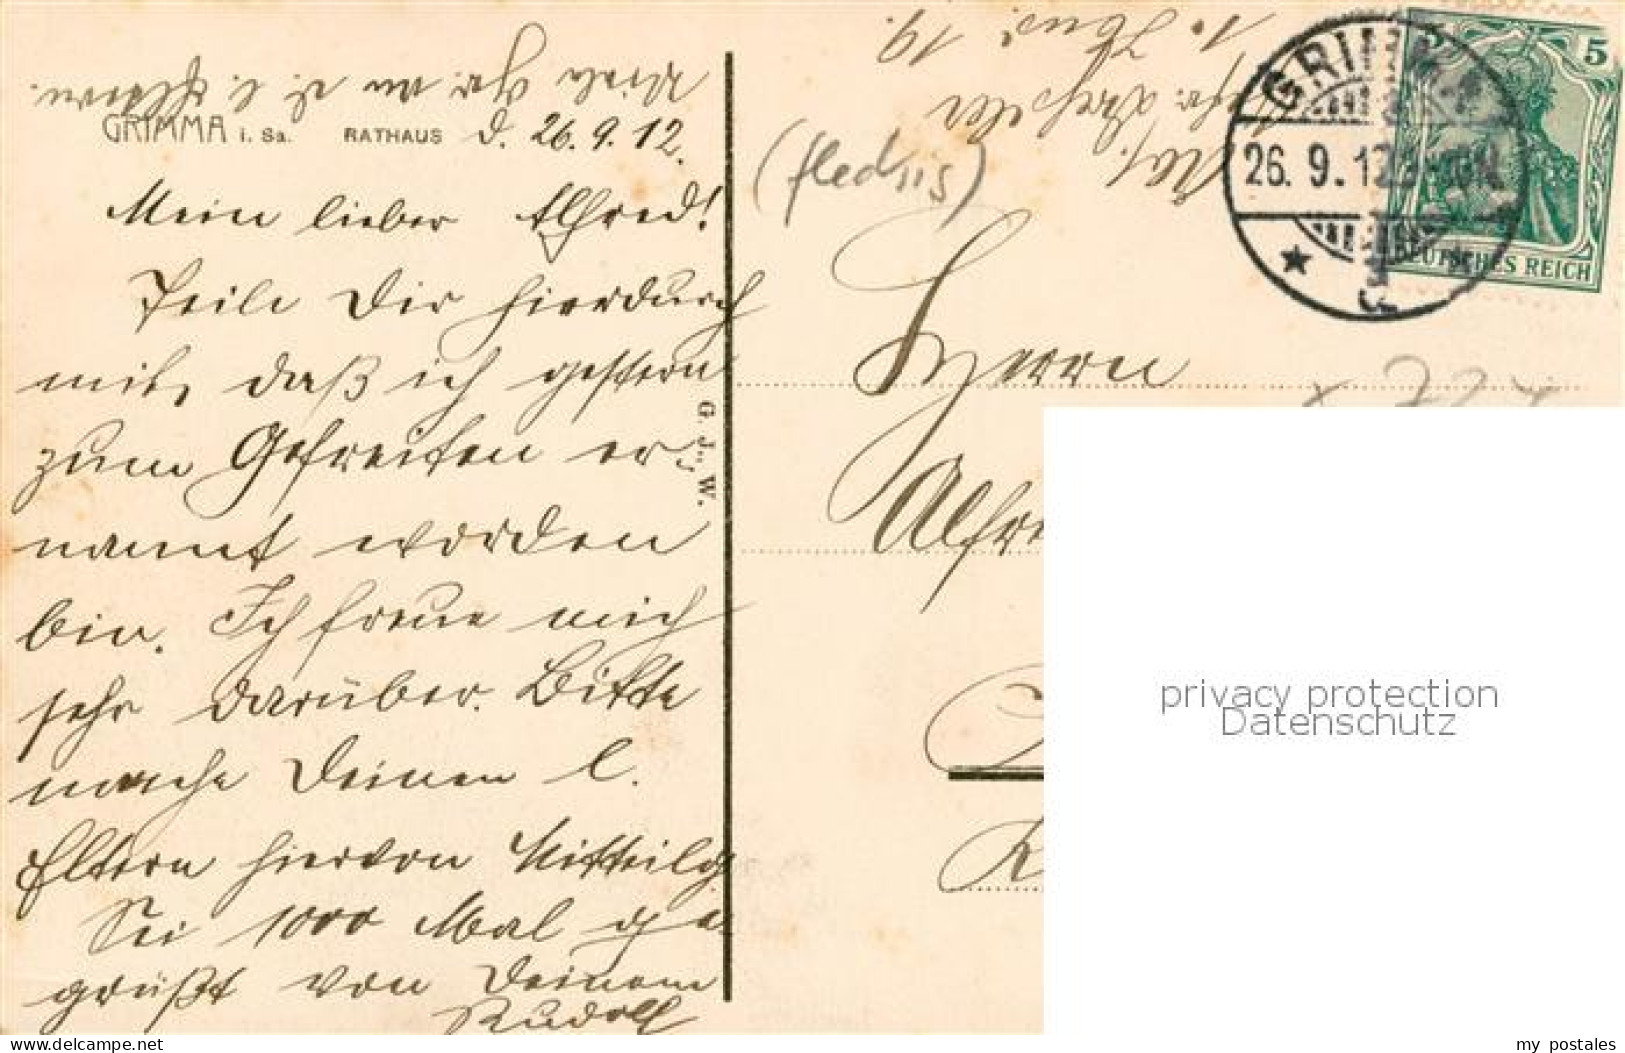 GRIMMA i. Sa. RATHAUS d. 26. 9. 12.
Mein lieber Alfred!
Teile Dir hierdurch
mit, daß ich gestern
zum Gefreiten er-
nannt worden
bin. Ich freue mich
sehr darüber. Bitte
mache Deinen l.
Eltern hiervon Mitteilg.
Sei 1000 Mal ge-
grüßt von Deinem
Rudolf
Viele Gr. an D. l. Eltern.
G. J., W.
1. 19.
GRIMMA
26. 9. 12
5
DEUTSCHES REICH
Herrn
privacy protection
Datenschutz
www.delcampe.net
my_postales